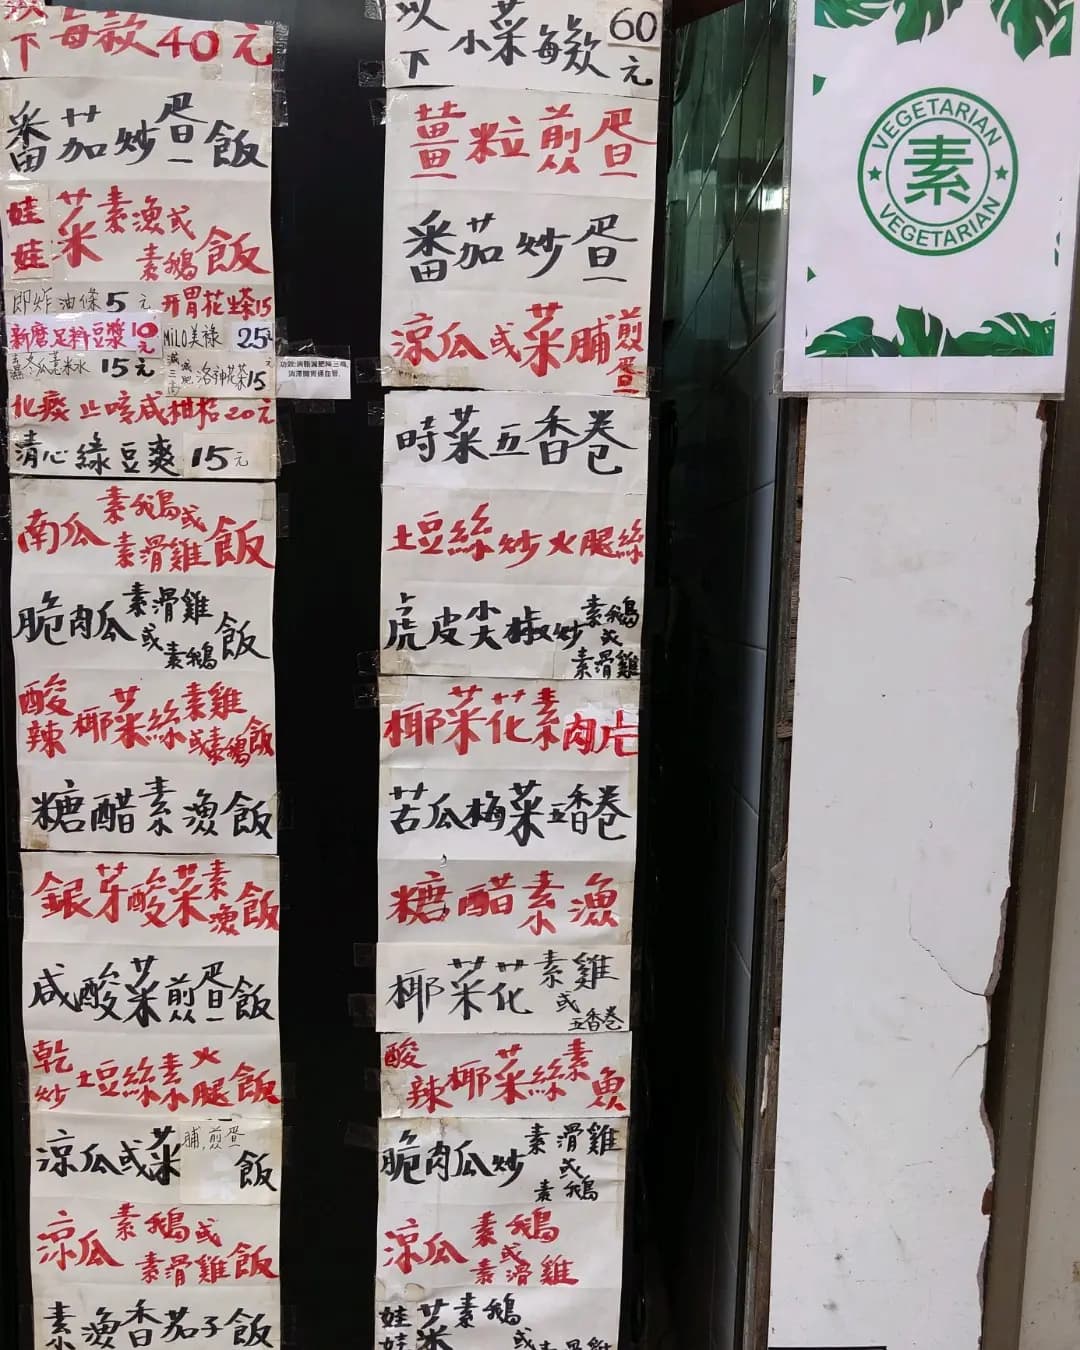 以下每款40元
番茄炒蛋飯
娃娃菜素漁或素鵝飯
即炸油條5元
開胃花生茶15
新磨足料豆漿10元
MILO美祿25元
冬瓜薏米水15元
減三高減肥洛神花茶15元
化痰止咳咸柑桔20元
清心綠豆爽15元
南瓜素鵝或素滑雞飯
脆肉瓜素滑雞或素鵝飯
酸辣椰菜絲素雞或素鵝飯
糖醋素漁飯
銀芽酸菜素漁飯
咸酸菜煎蛋飯
乾炒土豆絲素火腿飯
涼瓜或菜脯煎蛋飯
涼瓜素鵝或素滑雞飯
素漁香茄子飯
以下小菜每款60元
薑粒煎蛋
番茄炒蛋
涼瓜或菜脯煎蛋
時菜五香卷
土豆絲炒火腿絲
虎皮尖椒炒素鵝或素滑雞
椰菜花素肉片
苦瓜梅菜五香卷
糖醋素漁
椰菜花素雞或五香卷
酸辣椰菜絲素魚
脆肉瓜炒素滑雞或素鵝
涼瓜素鵝或素滑雞
娃娃菜素鵝或素滑雞
VEGETARIAN
素
VEGETARIAN